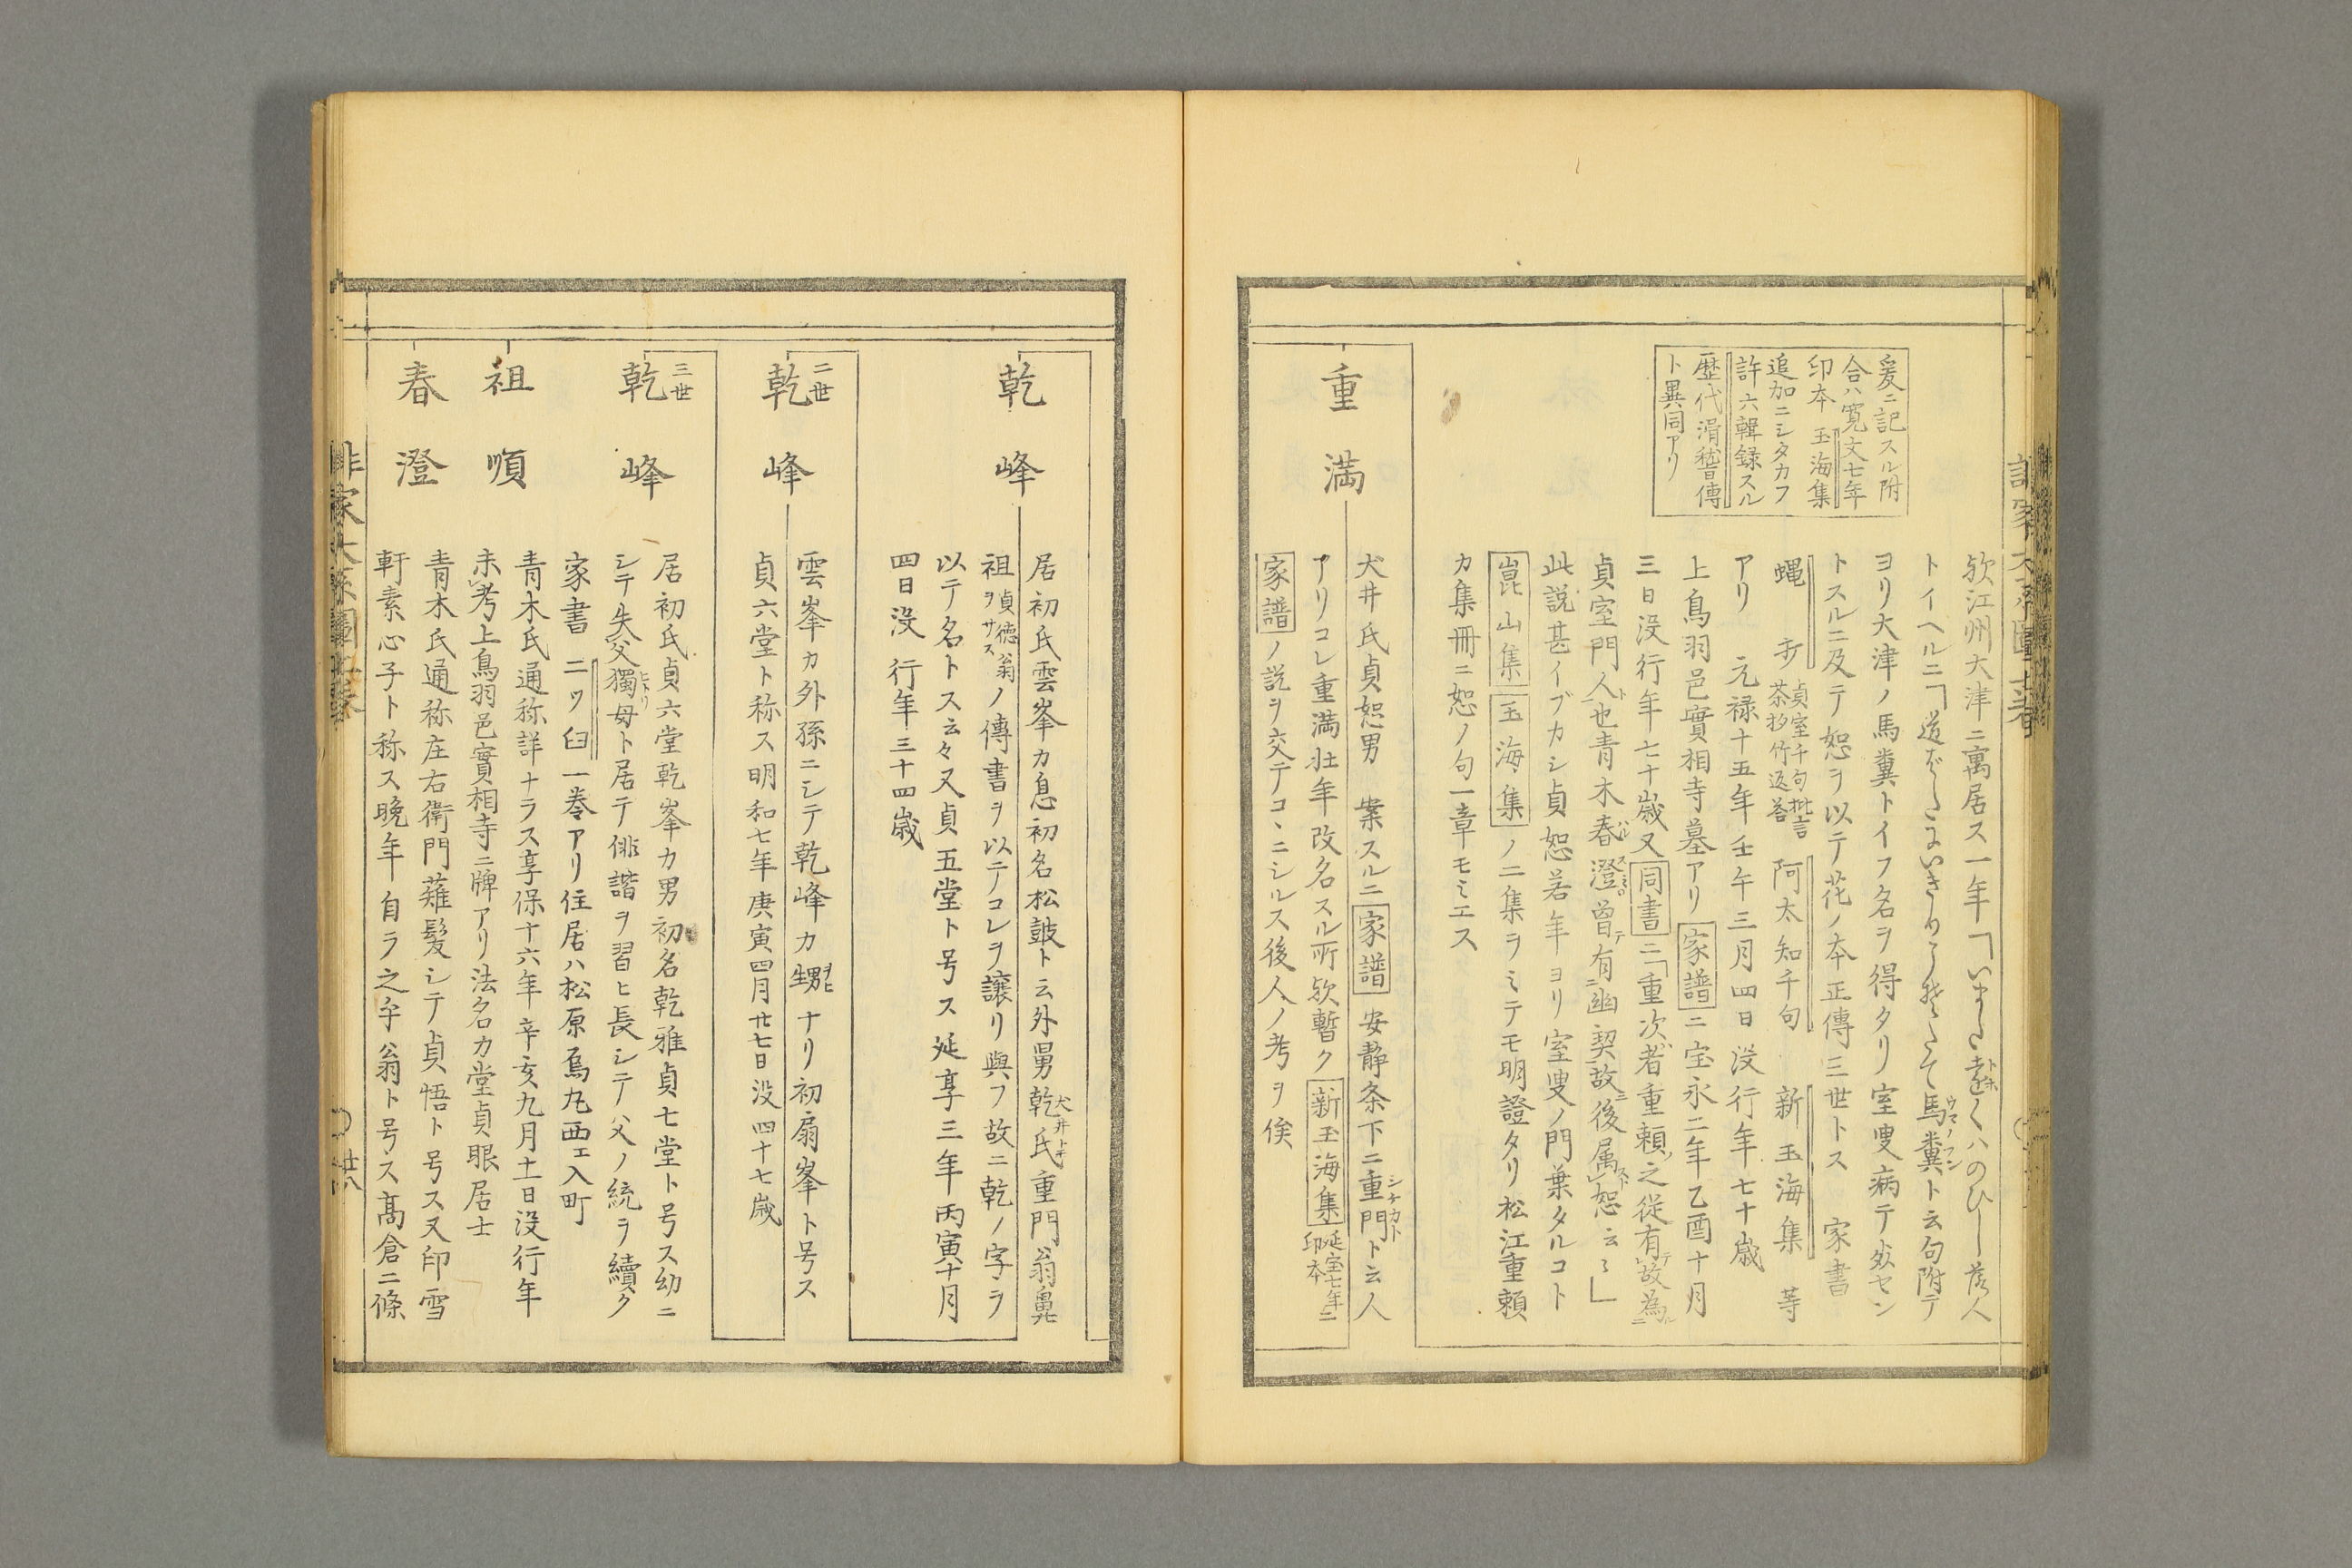 爰ニ記スル附
合ハ寛文七年
印本 玉海集
追加ニシタカフ
許六輯録スル
歴代滑稽傳
ト異同アリ
欤江州大津ニ寓居ス一年「いまた遠くハのひし落人
トイヘルニ「道ばたにいきりこそたて馬糞ト云句附テ
ヨリ大津ノ馬糞トイフ名ヲ得タリ室叟病テ歿セン
トスルニ及テ恕ヲ以テ花ノ本正傳三世トス 家書
蝿 打 貞室千句批言 茶杓竹返答 阿太知千句 新玉海集 等
アリ 元禄十五年壬午三月四日没行年七十歳
上鳥羽邑實相寺墓アリ 家譜 ニ宝永二年乙酉十月
三日没行年七十歳又 同書 ニ「重次者重頼之従有故為
貞室門人也青木春澄曽有幽契故後属恕云々」
此説甚イブカシ貞恕若年ヨリ室叟ノ門葉タルコト
崑山集 玉海集 ノ二集ヲミテモ明證タリ松江重頼
カ集冊ニ恕ノ句一章モミエス
重満
犬井氏貞恕男 案スルニ 家譜 安静条下ニ重門ト云人
アリコレ重満壮年改名スル所欤暫ク 新玉海集 延宝七年ニ印本
家譜 ノ説ヲ交テコヽニシルス後人ノ考ヲ俟
乾峰
居初氏雲峯カ息初名松皷ト云外舅乾氏重門翁鼻
祖ヲ貞徳翁サスノ傳書ヲ以テコレヲ譲リ與フ故ニ乾ノ字ヲ
以テ名トス云々又貞五堂ト号ス延享三年丙寅十月
四日没 行年三十四歳
二世
乾峰
雲峯カ外孫ニシテ乾峰カ甥ナリ初扇峯ト号ス
貞六堂ト称ス明和七年庚寅四月廿七日没四十七歳
三世
乾峰
居初氏貞六堂乾峯カ男初名乾雅貞七堂ト号ス幼ニ
シテ失父獨母ト居テ俳諧ヲ習ヒ長シテ父ノ統ヲ續ク
家書 二ツ臼 一巻アリ住居ハ松原烏丸西エ入町
祖順
青木氏通称詳ナラス享保十六年辛亥九月十一日没行年
未考上鳥羽邑實相寺ニ牌アリ法名カ堂貞眼居士
春澄
青木氏通称庄右衛門薙髪シテ貞悟ト号ス又印雪
軒素心子ト称ス晩年自ラ之乎翁ト号ス高倉二條